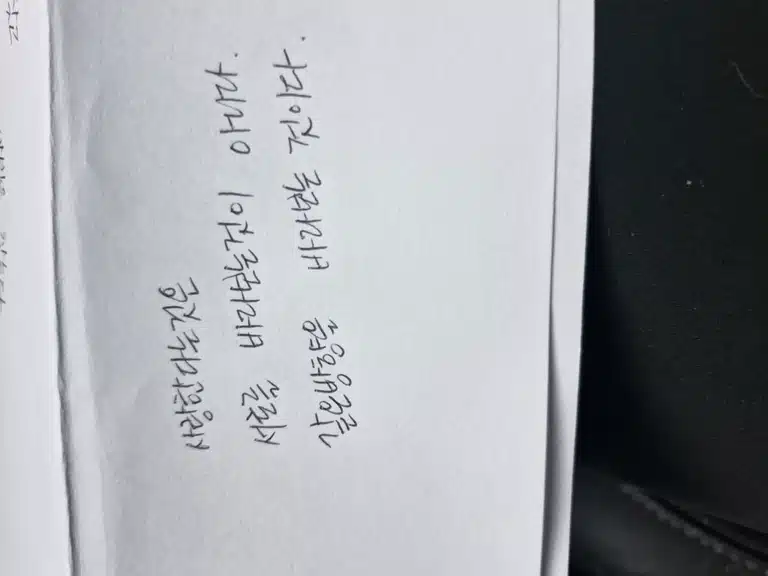 사랑한다는것은
서로를 바라보는것이 아니다.
같은방향을 바라보는 것이다.